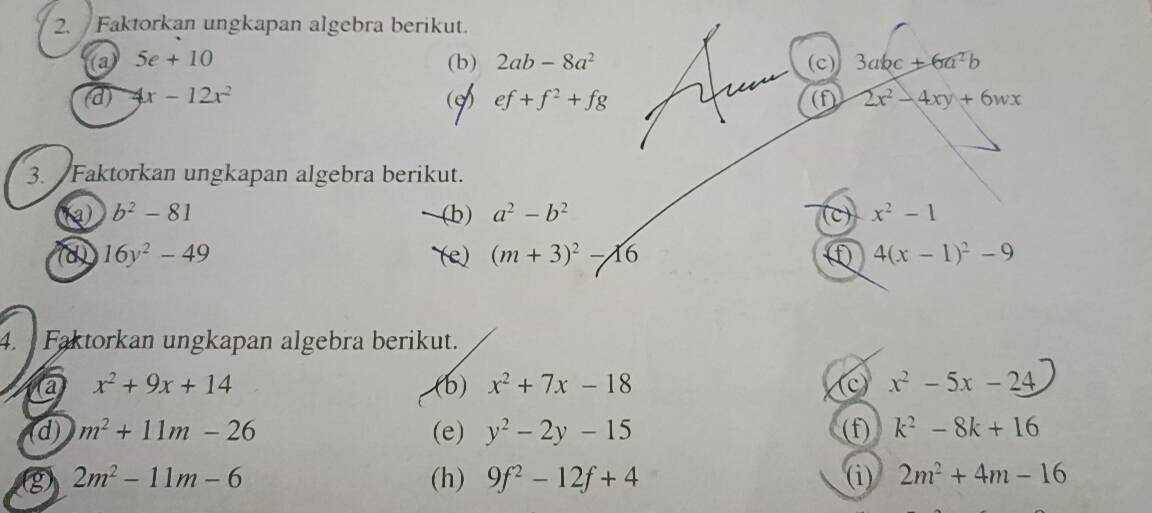 2. Faktorkan ungkapan algebra berikut.
(a) 5e + 10 (b) 2ab − 8a² (c) 3abc + 6a²b
(d) 4x − 12x² (e) ef + f² + fg (f) 2x² − 4xy + 6wx
3. Faktorkan ungkapan algebra berikut.
(a) b² − 81 (b) a² − b² (c) x² − 1
(d) 16y² − 49 (e) (m + 3)² − 16 (f) 4(x − 1)² − 9
4. Faktorkan ungkapan algebra berikut.
(a) x² + 9x + 14 (b) x² + 7x − 18 (c) x² − 5x − 24
(d) m² + 11m − 26 (e) y² − 2y − 15 (f) k² − 8k + 16
(g) 2m² − 11m − 6 (h) 9f² − 12f + 4 (i) 2m² + 4m − 16